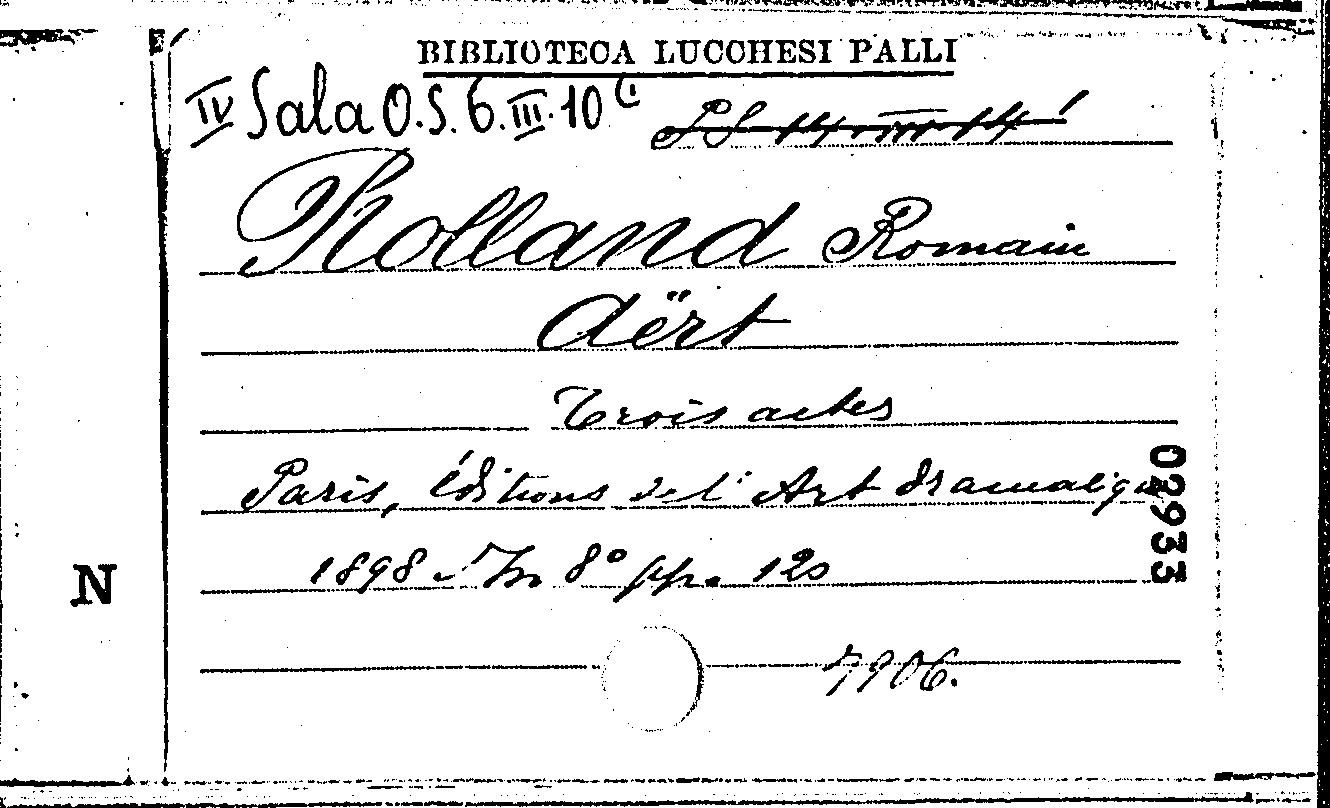 BIBLIOTECA LUCCHESI PALLI
IV Sala O.S. 6. III. 10
Rolland Romain
Aërt
Trois actes
Paris, éditions de l'Art dramatique
1898 In 8° pp. 120
02933
N
7906.